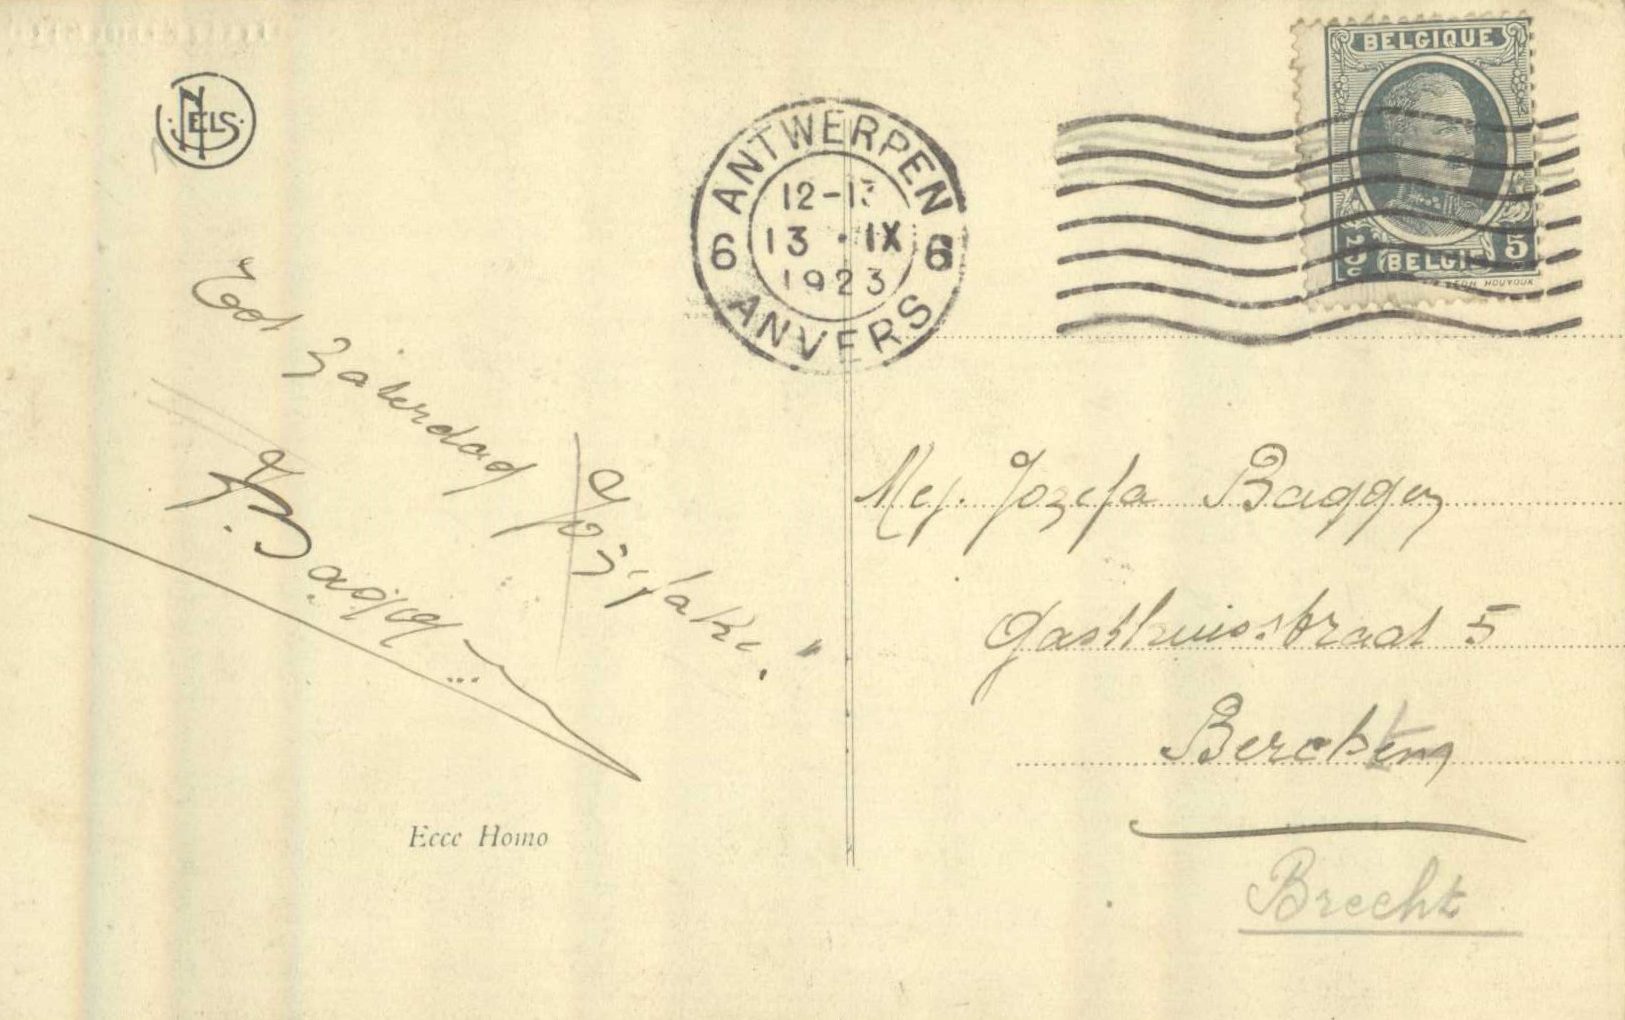 NELS
ANTWERPEN
12-13
13 · IX
1923
6 6
ANVERS
BELGIQUE
5
BELGIE
Tot Zaterdag
J. Baggen
Mej. Jozefa Baggen
Gasthuisstraat 5
Berchem
Brecht
Ecce Homo